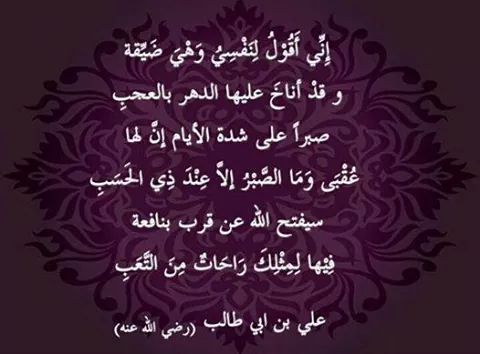 إِنِّي أَقُوْلُ لِنَفْسِيْ وَهْيَ ضَيِّقة
و قدْ أناخَ عليها الدهر بالعجبِ
صبراً على شدة الأيام إنَّ لها
عُقْبَى وَمَا الصَّبْرُ إلاَّ عِنْدَ ذِي الحَسَبِ
سيفتح الله عن قرب بنافعة
فِيْها لِمِثْلِكَ رَاحَاتٌ مِنَ التَّعَبِ
علي بن ابي طالب (رضي الله عنه)